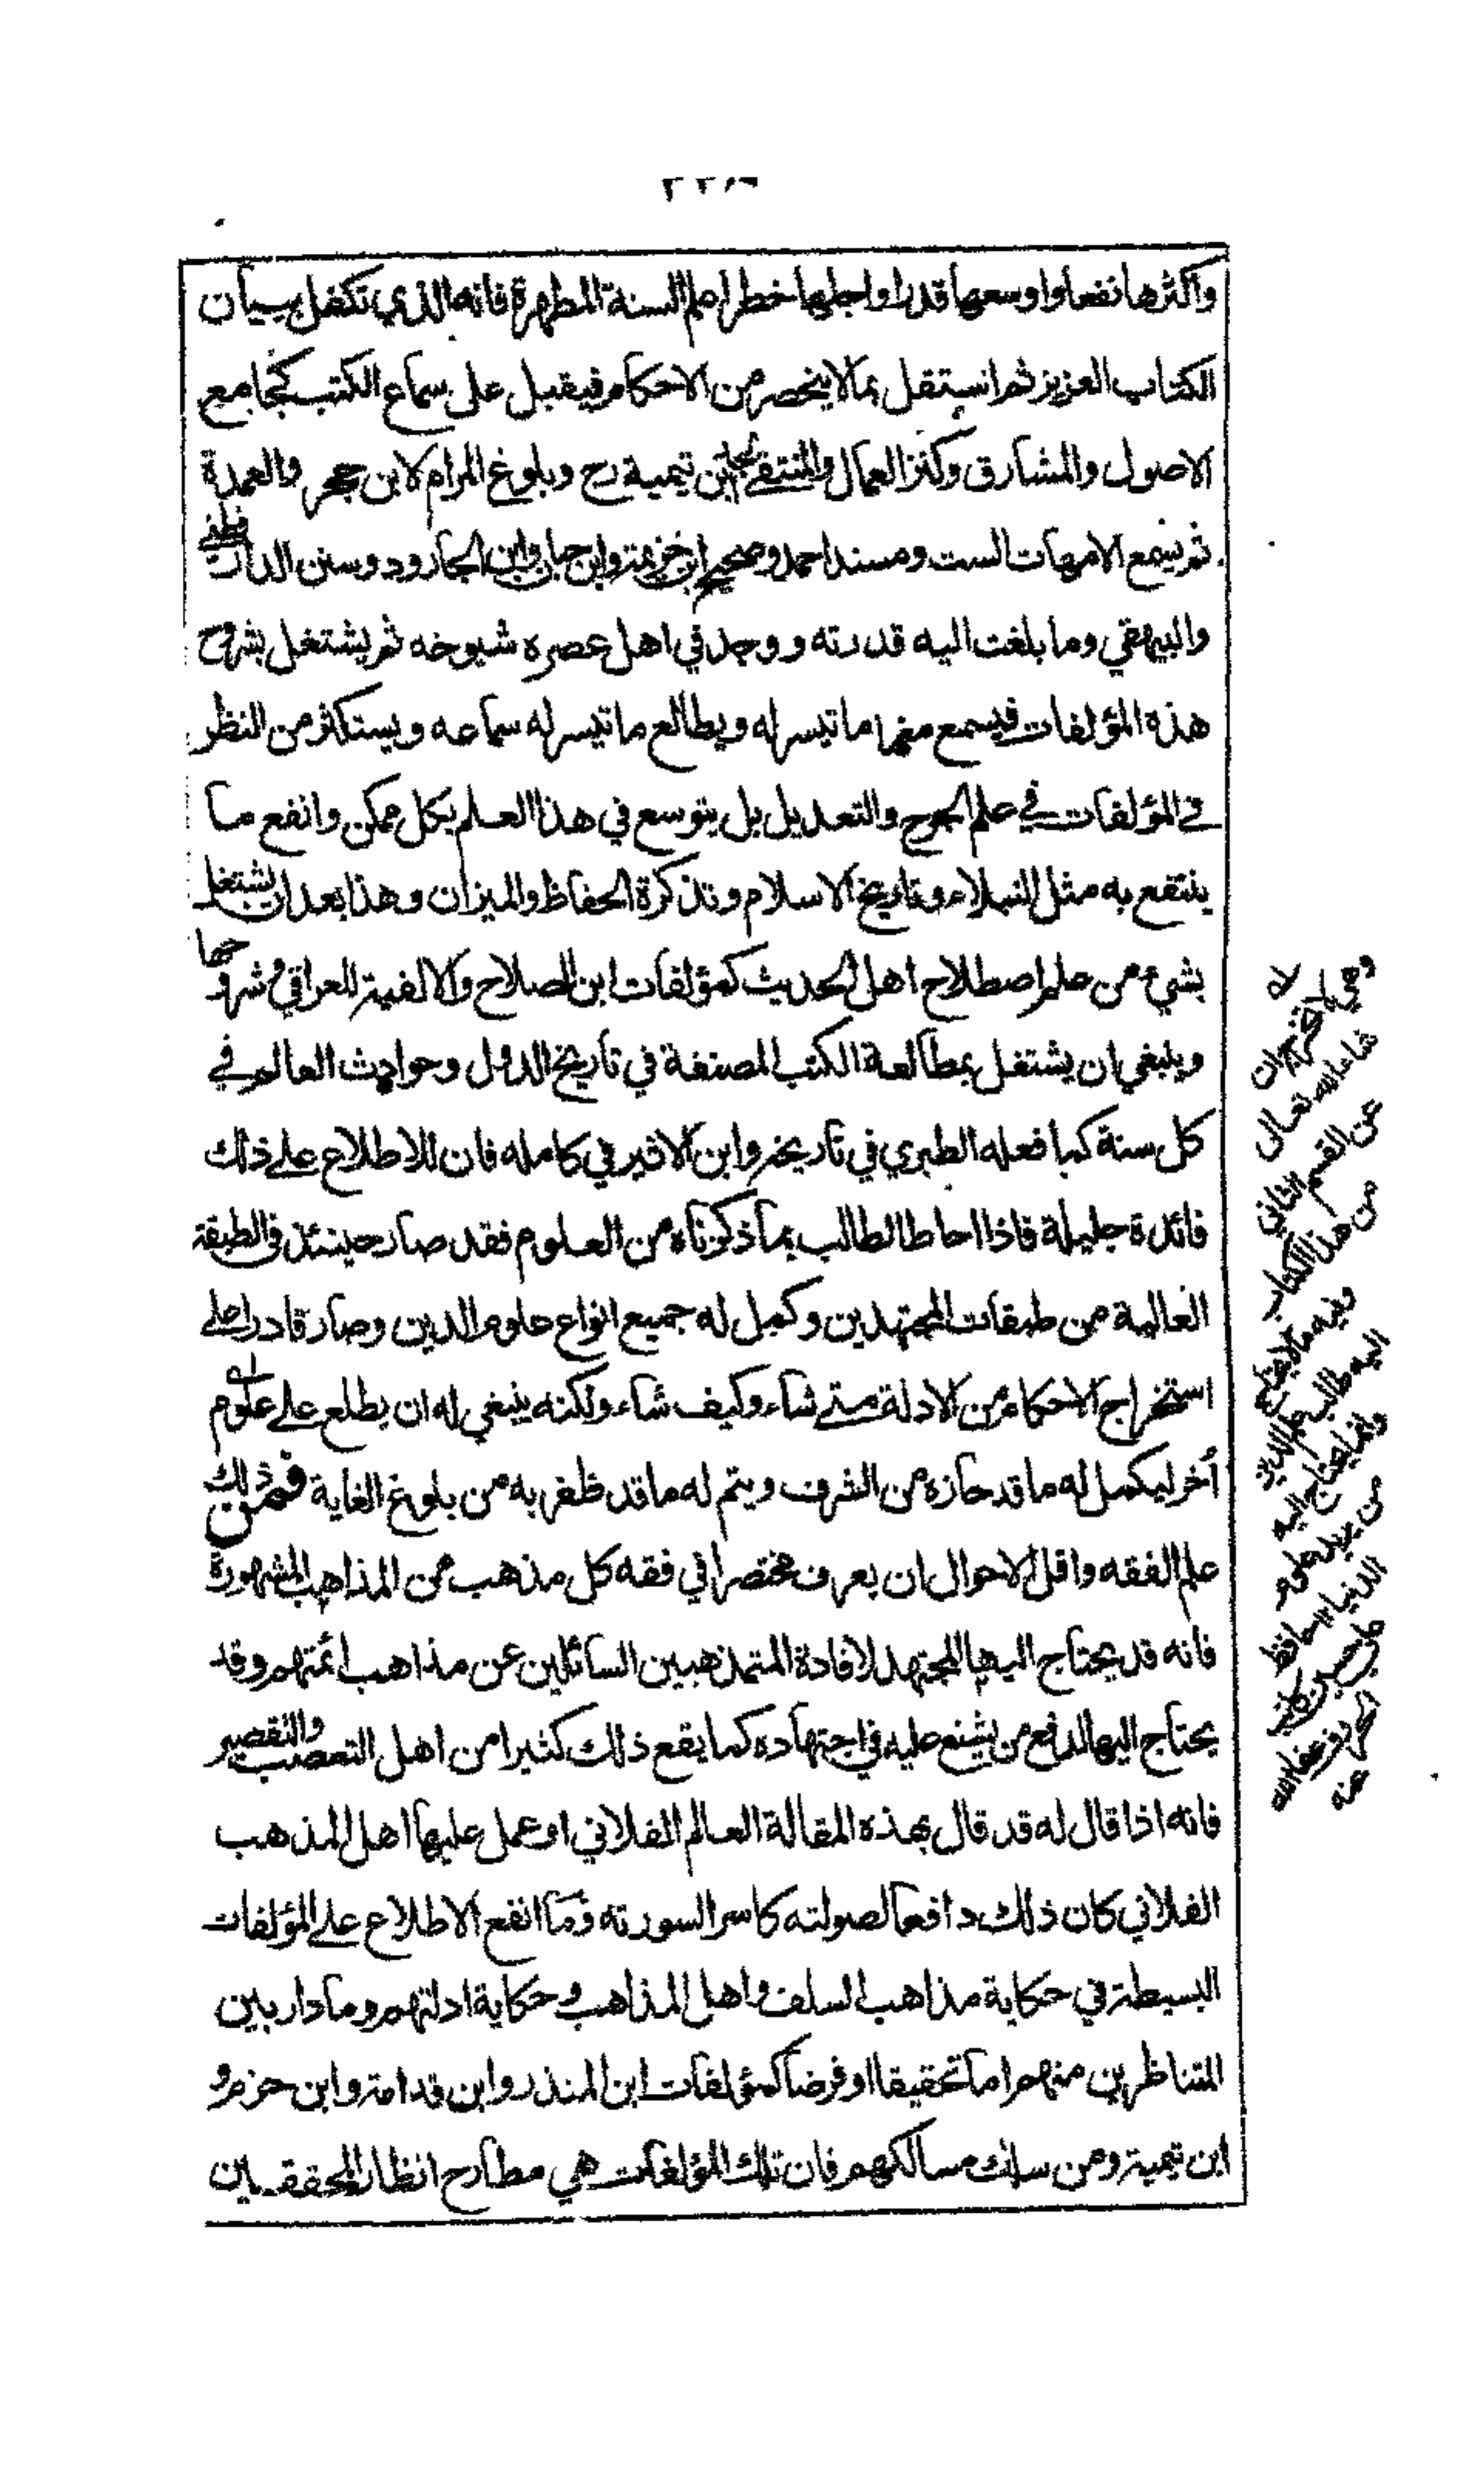 واكثرها نفعا واوسعها قدرا واجلها خطرا علم السنة المطهرة فانه الذي تكفل ببيان
الكتاب العزيز ثم استقل بما لا ينحصر من الاحكام فيقبل على سماع الكتب كجامع
الاصول والمشارق وكنز العمال والمنتقى لابن تيمية رح وبلوغ المرام لابن حجر والعمدة
ثم يسمع الامهات الست ومسند احمد وصحيح ابن خزيمة وابن حبان وابن الجارود وسنن الدارقطني
والبيهقي وما بلغت اليه قدرته ووجد في اهل عصره شيوخه ثم يشتغل بشروح
هذه المؤلفات فيسمع منها ما تيسر له ويطالع ما تيسر له سماعه ويستكثر من النظر
في المؤلفات في علم الجرح والتعديل بل يتوسع في هذا العلم بكل ممكن وانفع ما
ينتفع به مثل النبلاء وتاريخ الاسلام وتذكرة الحفاظ والميزان وهذا بعد ان يشتغل
بشيء من علم اصطلاح اهل الحديث كمؤلفات ابن الصلاح والالفية للعراقي وشروحها
وينبغي ان يشتغل بمطالعة الكتب المصنفة في تاريخ الدول وحوادث العالم في
كل سنة كما فعله الطبري في تاريخه وابن الاثير في كامله فان للاطلاع على ذلك
فائدة جليلة فاذا احاط الطالب بما ذكرناه من العلوم فقد صار حينئذ في الطبقة
العالية من طبقات المجتهدين وكمل له جميع انواع علوم الدين وصار قادرا على
استخراج الاحكام من الادلة متى شاء وكيف شاء ولكنه ينبغي له ان يطلع على علوم
أخر ليكمل له ما قد حازه من الشرف ويتم له ما قد ظفر به من بلوغ الغاية فمن ذلك
علم الفقه واقل الاحوال ان يعرف مختصرا في فقه كل مذهب من المذاهب المشهورة
فانه قد يحتاج اليها المجتهد لافادة المتمذهبين السائلين عن مذاهب ائمتهم وقد
يحتاج اليها لدفع من يشنع عليه في اجتهاده كما يقع ذلك كثيرا من اهل التعصب والتقصير
فانه اذا قال له قد قال بهذه المقالة العالم الفلاني او عمل عليها اهل المذهب
الفلاني كان ذلك دافعا لصولته كاسرا لسورته ومما انفع الاطلاع على المؤلفات
البسيطة في حكاية مذاهب السلف واهل المذاهب وحكاية ادلتهم وما دار بين
المتناظرين منهم اما تحقيقا او فرضا كمؤلفات ابن المنذر وابن قدامة وابن حزم و
ابن تيمية ومن سلك مسالكهم فان تلك المؤلفات هي مطارح انظار المحققين
شاء الله تعالى
عن القسم الثاني
من هذا الكتاب